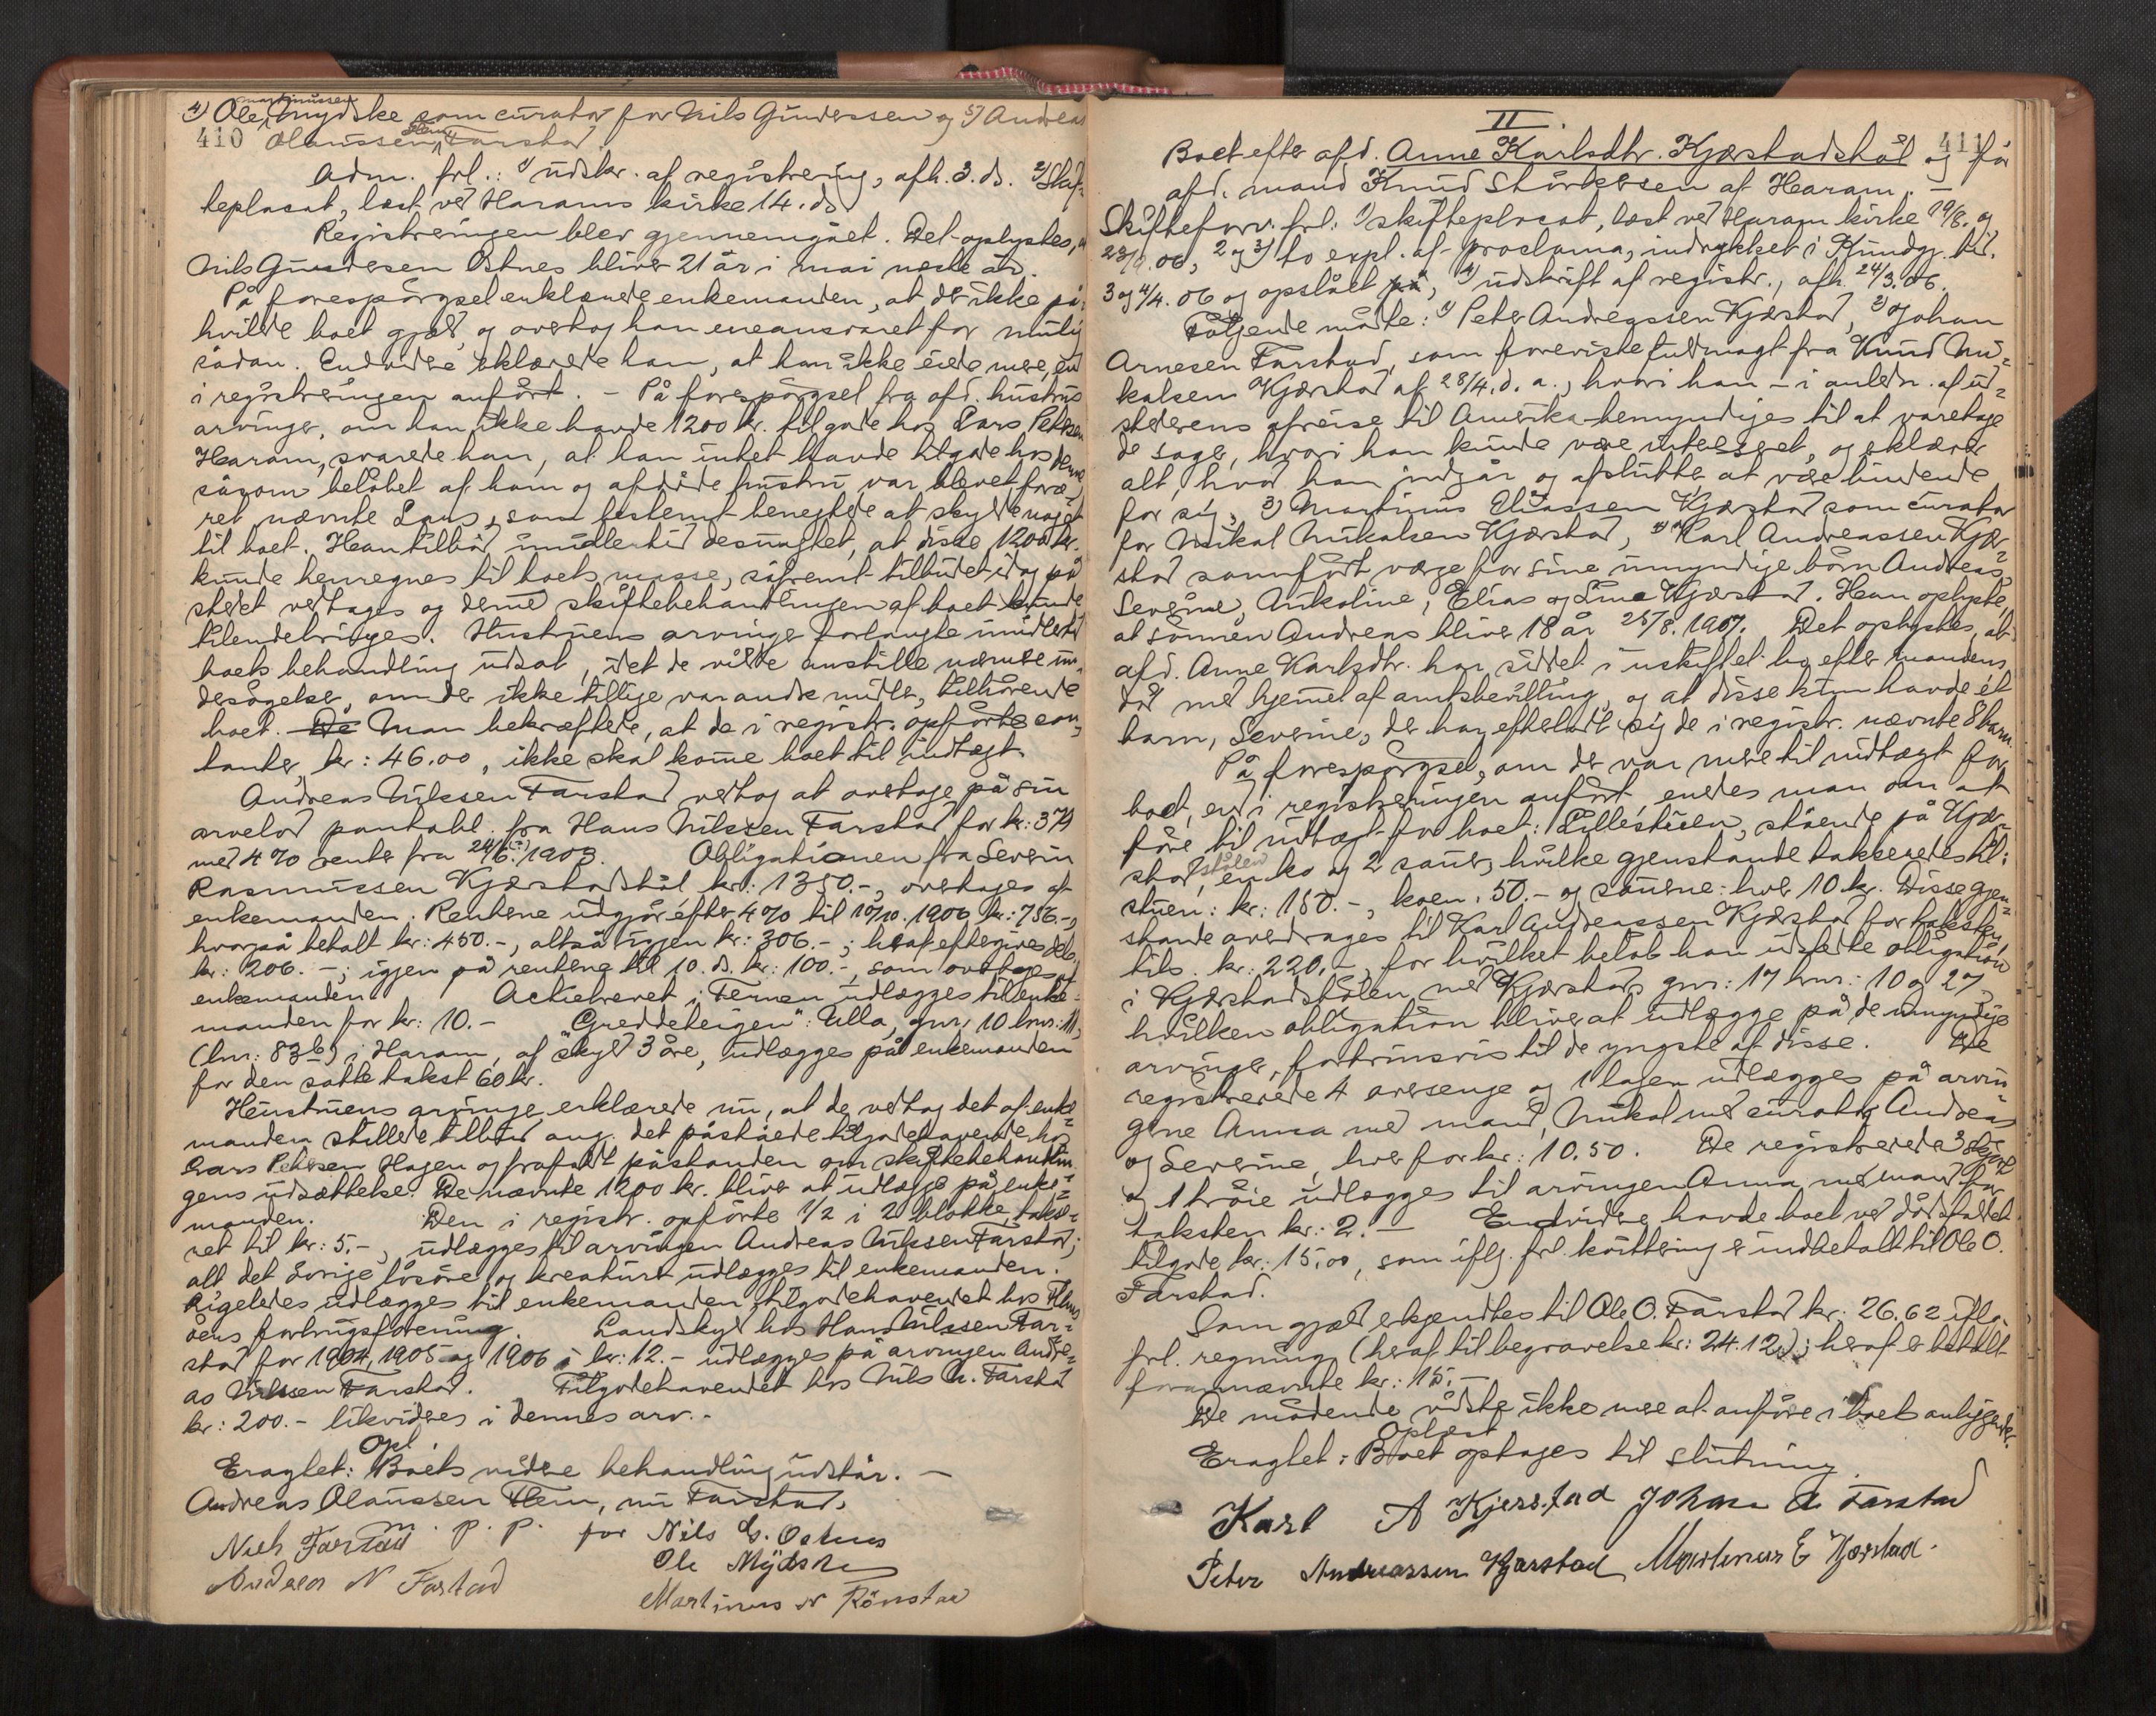 4) Ole Martinussen Mydske som curator for Nils Gunderssen og 5) Andreas
410 Olaussen Flem Farstad.
Adm. frl.: 1) udskr. af registrering, afh. 3. ds. 2) Skif-
teplacat, læst ved Harams kirke 14. ds.
Registreringen blev gjennemgået. Det oplystes, at
Nils Gundersen Østnes bliver 21 år i mai næste år.
På forespørgsel erklærede enkemanden, at der ikke på-
hvilede boet gjæld, og overtog han eneansvaret for mulig
sådan. Endvidere erklærede han, at han ikke eiede mere, end
i registreringen anført. - På forespørgsel fra afd. hustrus
arvinger, om han ikke havde 1200 kr. tilgode hos Lars Petersen
Haram, svarede han, at han intet havde tilgode hos denne
såsom beløbet af ham og afdøde hustru var blevet foræ-
ret nævnte Lars, som bestemt benegtede at skylde noget
til boet. Han tilbød imidlertid desuagtet, at disse 1200 kr.
kunde henregnes til boets masse, såfremt tilbudet idag på
stedet vedtages og derned skiftebehandlingen af boet kunde
tilendebringes. Hustruens arvinger forlangte imidlertid
boets behandling udsat, idet de vilde anstille nærmere un-
dersøgelser, om der ikke tillige var andre midler, tilhørende
boet. De Man bekræftede, at de i registr. opførte con-
tanter, kr: 46.00, ikke skal komme boet til indtægt.
Andreas Nilssen Farstad vedtog at overtage på sin
arvelod pantobl. fra Hans Nilssen Farstad for kr: 374
med 4 % rente fra 24/6 1903. Obligationen fra Severin
Rasmussen Kjærstadstøl kr: 1350.-, overtages af
enkemanden. Renterne udgjør efter 4 % til 10/10. 1906, kr: 756.-,
hvorpå betalt kr: 450.-, altså igjen kr: 306.-; heraf eftergives
kr: 206.-; igjen på renterne til 10. ds. kr: 100.-, som overtages af
enkemanden. Actiebrevet i Ternen udlægges til enke-
manden for kr: 10.- "Greddeteigen": Ulla, gnr. 10 bnr: 11,
(lnr: 83 b) i Haram, af skyld 3 øre, udlægges på enkemanden
for den satte takst 60 kr.
Hustruens arvinger erklærede nu, at de vedtog det af enke-
manden stillede tilbud ang. det påståede tilgodehavende hos
Lars Petersen Hagen og frafaldt påstanden om skiftebehandlin-
gens udsættelse. De nævnte 1200 kr. bliver at udlægge på enke-
manden. Den i registr. opførte 1/2 i 2 blokke, takse-
ret til kr: 5.-, udlægges til arvingen Andreas Nilssen Farstad;
alt det øvrige løsøre og kreaturer udlægges til enkemanden.
Ligeledes udlægges til enkemanden tilgodehavendet hos Flem-
øens forbrugsforening. Landskyld hos Hans Nilssen Far-
stad for 1904, 1905 og 1906 i kr: 12.- udlægges på arvingen Andre-
as Nilssen Farstad. Tilgodehavendet hos Nils N. Farstad
kr: 200.- likvideres i dennes arv.-
Opl.
Eragtet: Boets videre behandling udstår. -
Andreas Olaussen Flem, nu Farstad.
Nils Farstad m. p. P. for Nils G. Ostnes
Ole Mydske
Andreas N Farstad
Martinus N Rönstad
II.
411
Boet efter afd. Anne Karlsdtr. Kjærstadstøl og før
afd. mand Knud Størkersen af Haram. -
Skifteforv. frl: 1) skifteplacat, læst ved Haram kirke 19/8. og
23/9. 06, 2 og 3) to expl. af proclama, indrykket i Kundgj. tid.
3 og 4/4. 06 og opslått på, 4) udskrift af registr., afh. 24/3. 06.
Følgende mødte: 1) Peter Andreassen Kjærstad, 2) Johan
Arnesen Farstad, som foreviste fuldmagt fra Knud Mi-
kalsen Kjærstad af 28/4. d. a., hvori han - i anledn. af ud-
stederens afreise til Amerika - bemyndiges til at varetage
de sager, hvori han kunde være interesseret, og erklærer
alt, hvad han indgår og afslutter, at være bindende
for sig, 3) Martinus Eliassen Kjærstad som curator
for Mikal Mikalsen Kjærstad, 4) Karl Andreassen Kjær-
stad som født værge for sine umyndige børn Andreas,
Severine, Nikoline, Elias og Sina Kjærstad. Han oplyste,
at sønnen Andreas bliver 18 år 25/8. 1907. Det oplystes, at
afd. Anne Karlsdtr. har siddet i uskiftet bo efter mandens
død med hjemmel af amtsbevilling, og at disse kun havde ét
barn, Severine, der har efterladt sig de i registr. nævnte 8 barn.
På forespørgsel, om der var mere til indtægt for
boet, end i registreringen anført, enedes man om at
føre til indtægt for boet: Lillestuen, stående på Kjær-
stadstølen, en ko og 2 sauer, hvilke gjenstande takseredes til:
stuen: kr: 150.-, koen: 50.- og sauerne: hver 10 kr. Disse gjen-
stande overdrages til Karl Andreassen Kjærstad for taksten,
tils. kr: 220.-, for hvilket beløb han udstedte obligation
i Kjærstadstølen med Kjærstad, gnr: 17 bnr: 10 og 27,
hvilken obligation bliver at udlægge på de umyndige
arvinger, fortrinsvis til de yngste af disse. De
registrerede 4 oversenge og 1 lagen udlægges på arvin-
gene Anna med mand, Mikal med curator, Andreas
og Severine, hver for kr: 10.50. De registrerede 3 skjørt
og 1 trøie udlægges til arvingen Anna med mand for
taksten kr: 2.- Endvidere havde boet ved dødsfaldet
tilgode kr: 15,00, som iflg. frl. kvittering er indbetalt til Ole O.
Farstad.
Som gjæld erkjendtes til Ole O. Farstad kr: 26.62 iflg.
frl. regning (heraf til begravelse kr: 24.12); heraf er betalt
forannævnte kr: 15.-
De mødende vidste ikke mere at anføre i boets anliggender.
Oplæst
Eragtet: Boet optages til slutning.
Karl A Kjerstad Johan A Farstad
Peter Andreassen Kjærstad Martinus E Kjærstad.